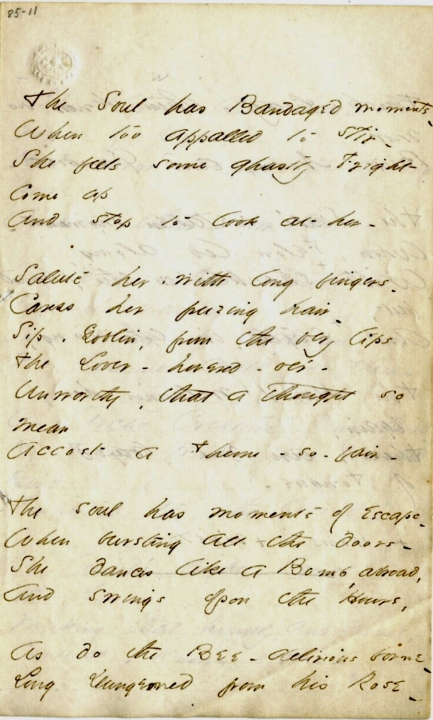 85-11
The Soul has Bandaged moments
When too appalled to stir -
She feels some ghastly Fright
come up
And stop to look at her -
Salute her, with long fingers -
Caress her freezing hair -
Sip, Goblin, from the very lips
The Lover - hovered - o'er -
Unworthy, that a thought so
mean
Accost a Theme - so - fair -
The soul has moments of Escape -
When bursting all the doors -
She dances like a Bomb, abroad,
And swings opon the Hours,
As do the Bee - delirious borne -
Long Dungeoned from his Rose -